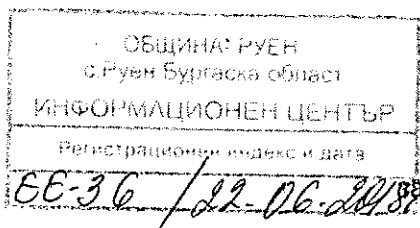 ОБЩИНА: РУЕН
с.Руен Бургаска област
ИНФОРМАЦИОНЕН ЦЕНТЪР
Регистрационен индекс и дата
ЕЕ-36 / 22-06-2018г